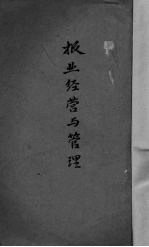 报业经营与管理